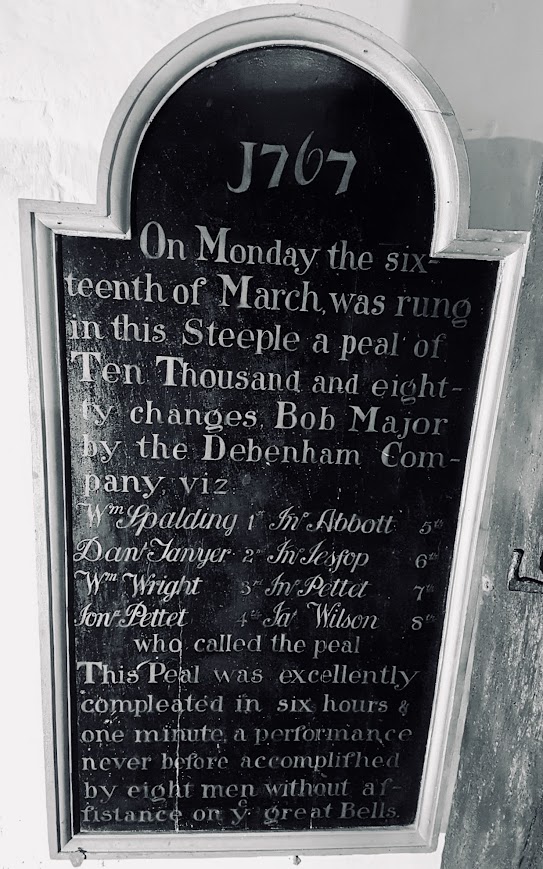 1767
On Monday the six-
teenth of March, was rung
in this Steeple a peal of
Ten Thousand and eight-
ty changes, Bob Major
by the Debenham Com-
pany, viz.
Wm Spalding 1st Jno Abbott 5th
Danl Tanyer 2d Jno Jeſſop 6th
Wm Wright 3rd Jno Pettet 7th
Jonn Pettet 4th Jas Wilson 8th
who called the peal
This Peal was excellently
compleated in six hours &
one minute, a performance
never before accompliſhed
by eight men without aſ-
ſistance on ye great Bells.